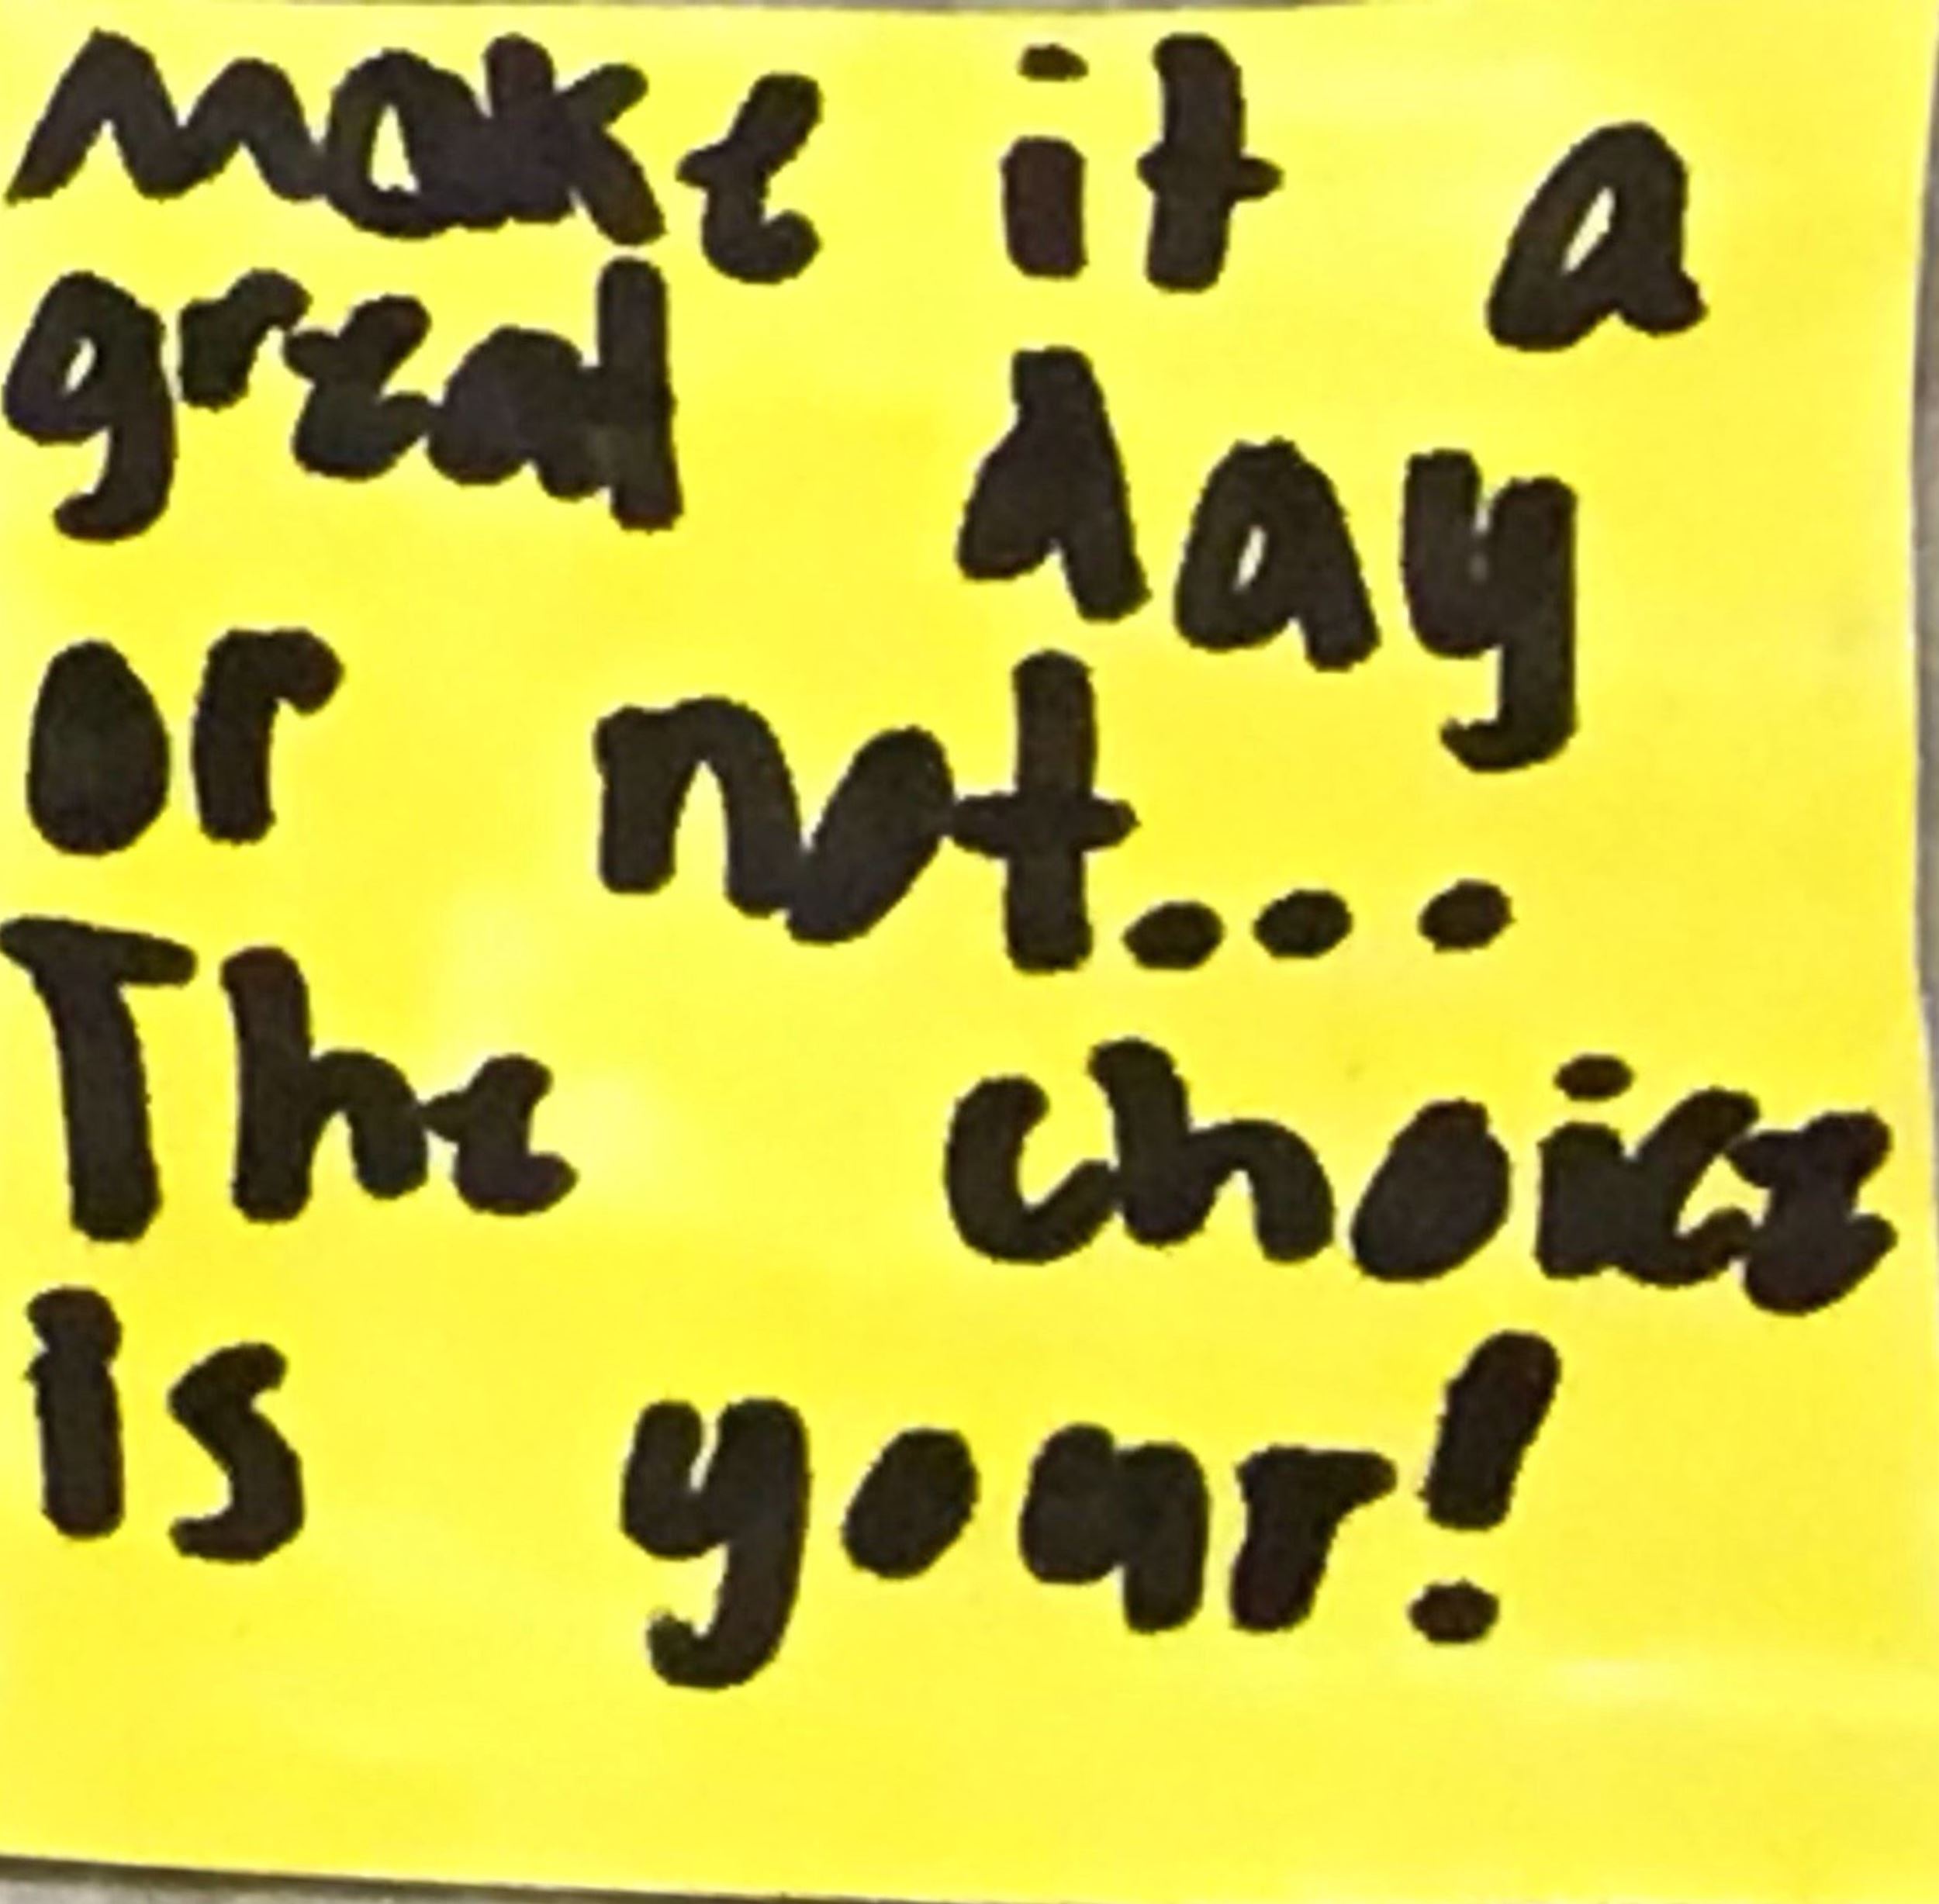 make it a
great day
or not...
The choice
is your!